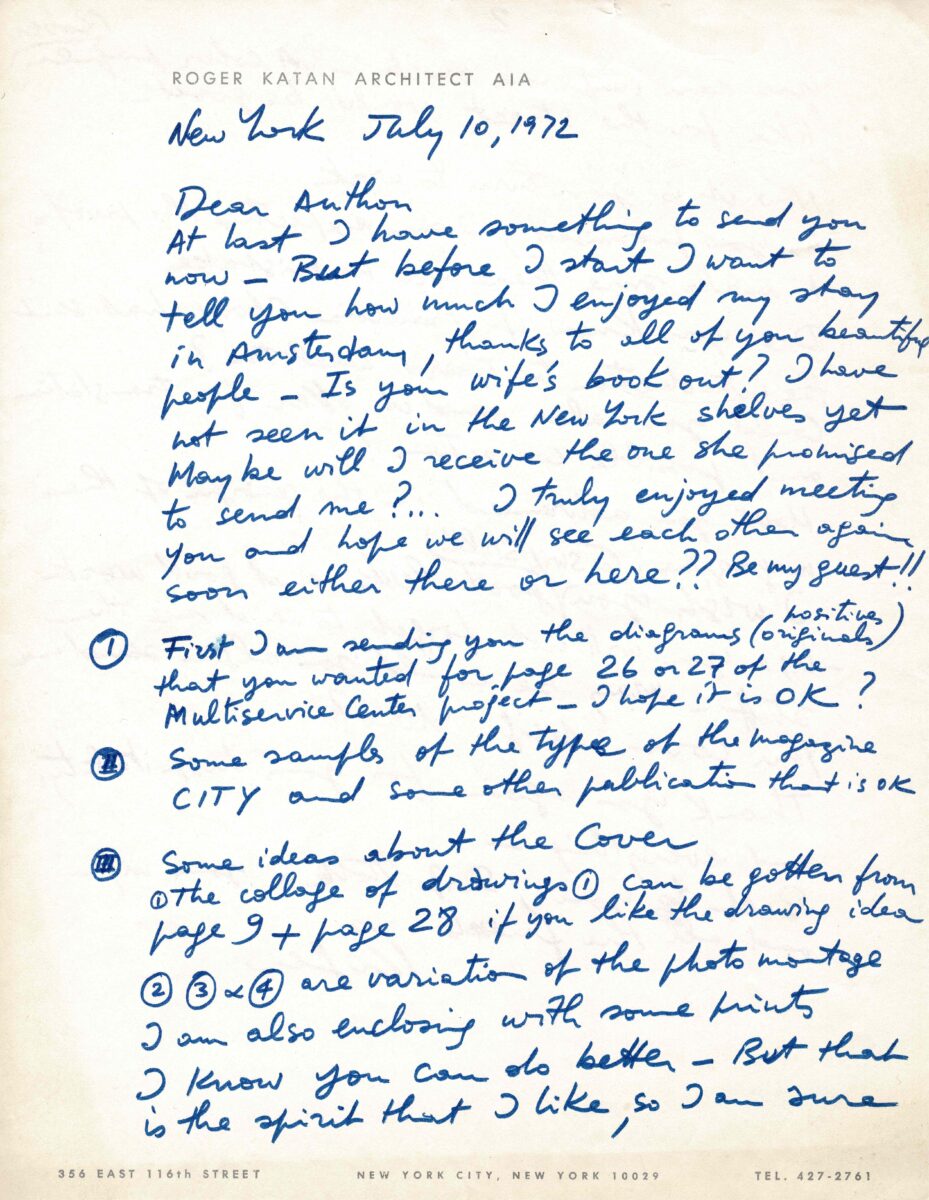 ROGER KATAN ARCHITECT AIA
New York July 10, 1972
Dear Anthon
At last I have something to send you
now – But before I start I want to
tell you how much I enjoyed my stay
in Amsterdam, thanks to all of you beautiful
people – Is your wife's book out? I have
not seen it in the New York shelves yet
Maybe will I receive the one she promised
to send me?... I truly enjoyed meeting
you and hope we will see each other again
soon either there or here?? Be my guest!!
I First I am sending you the diagrams (positives originals)
that you wanted for page 26 or 27 of the
Multiservice Center project – I hope it is OK?
II Some samples of the type of the magazine
CITY and some other publication that is OK
III Some ideas about the Cover
① The collage of drawings ① can be gotten from
page 9 + page 28 if you like the drawing idea
② ③ & ④ are variation of the photo montage
I am also enclosing with some prints
I know you can do better – But that
is the spirit that I like, so I am sure
356 EAST 116th STREET NEW YORK CITY, NEW YORK 10029 TEL. 427-2761